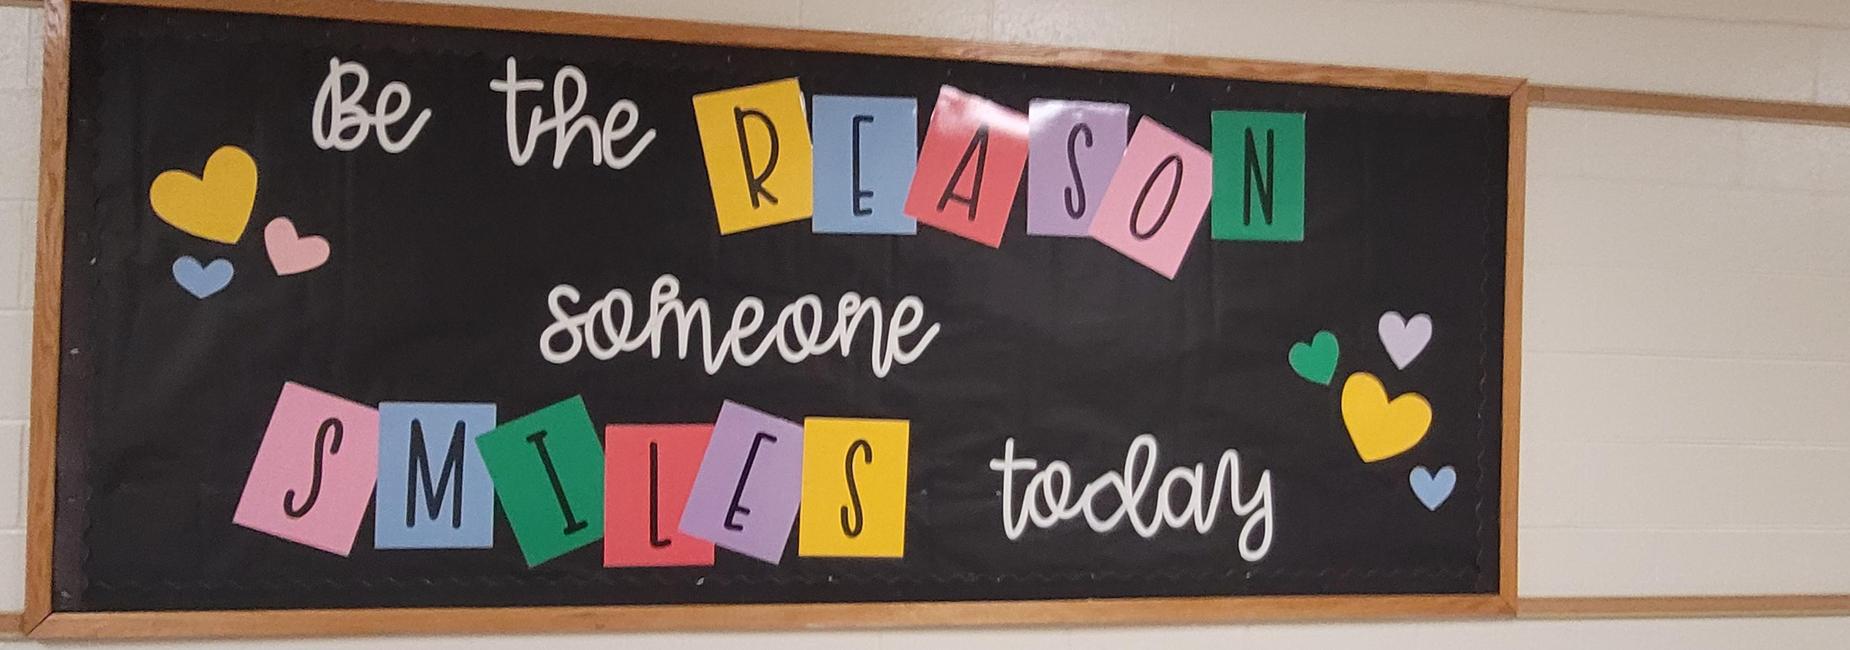 Be the REASON
someone
SMILES today